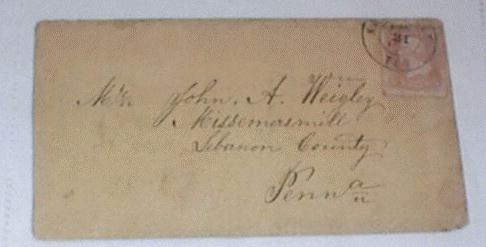 21
Mr. John. A. Weigley
Missemersmill
Lebanon County
Penn a